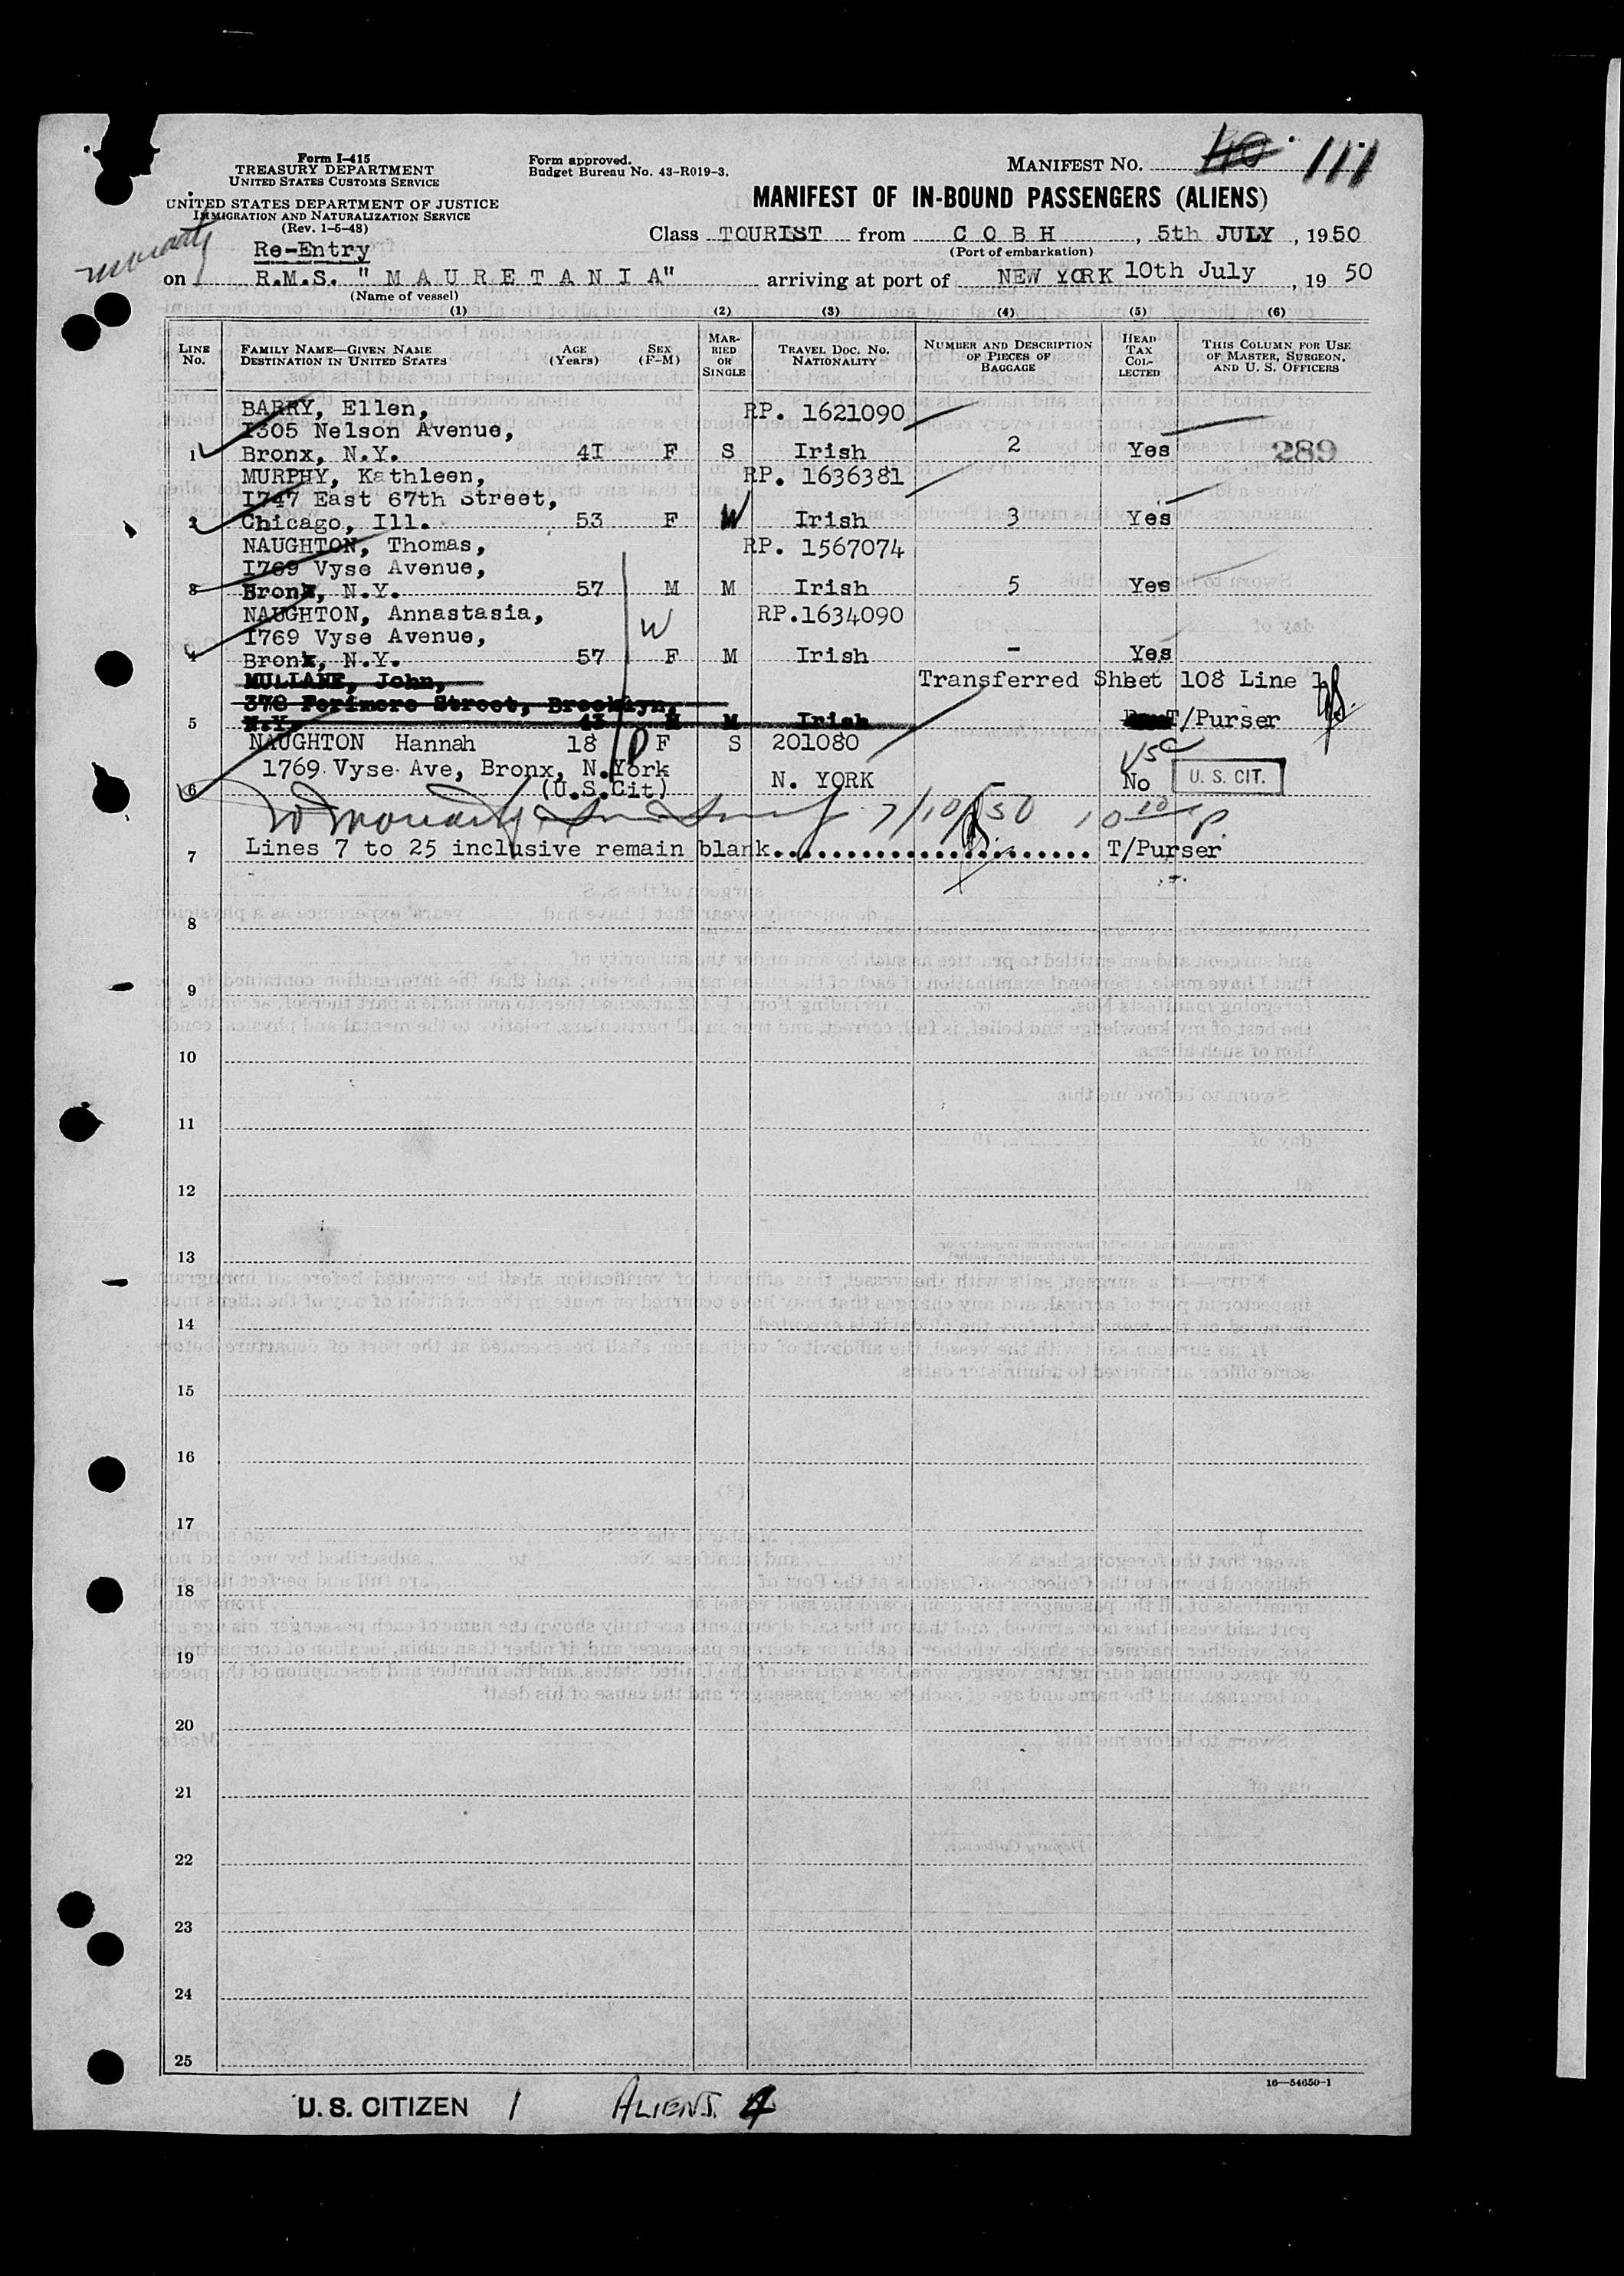 Form I-415
TREASURY DEPARTMENT
UNITED STATES CUSTOMS SERVICE
UNITED STATES DEPARTMENT OF JUSTICE
IMMIGRATION AND NATURALIZATION SERVICE
(Rev. 1-5-48)
Form approved.
Budget Bureau No. 43-R019-3.
MANIFEST NO. 110 111
MANIFEST OF IN-BOUND PASSENGERS (ALIENS)
Moriarty
Re-Entry
Class TOURIST from C O B H, 5th JULY, 1950
(Port of embarkation)
on R.M.S. "M A U R E T A N I A" arriving at port of NEW YORK 10th July, 19 50
(Name of vessel)
(1) (2) (3) (4) (5) (6)
LINE NO. FAMILY NAME—GIVEN NAME DESTINATION IN UNITED STATES AGE (Years) SEX (F-M) MARRIED OR SINGLE TRAVEL DOC. NO. NATIONALITY NUMBER AND DESCRIPTION OF PIECES OF BAGGAGE HEAD TAX COLLECTED THIS COLUMN FOR USE OF MASTER, SURGEON, AND U. S. OFFICERS
BARRY, Ellen, RP. 1621090
1305 Nelson Avenue,
1 Bronx, N.Y. 4I F S Irish 2 Yes 289
MURPHY, Kathleen, RP. 1636381
I747 East 67th Street,
2 Chicago, Ill. 53 F W Irish 3 Yes
NAUGHTON, Thomas, RP. 1567074
I769 Vyse Avenue,
3 Bronx, N.Y. 57 M M Irish 5 Yes
NAUGHTON, Annastasia, RP.1634090
I769 Vyse Avenue, W
4 Bronx, N.Y. 57 F M Irish - Yes
MULLANE, John, Transferred Sheet 108 Line 1
378 Fenimore Street, Brooklyn,
5 N.Y. 43 M M Irish T/Purser
NAUGHTON Hannah 18 F S 201080 USC
1769 Vyse Ave, Bronx, N.York N. YORK No U. S. CIT.
6 (U.S.Cit)
7/10/50 10 10 P.
7 Lines 7 to 25 inclusive remain blank........................ T/Purser
8
9
10
11
12
13
14
15
16
17
18
19
20
21
22
23
24
25
16—54650-1
U. S. CITIZEN 1 ALIENS. 4